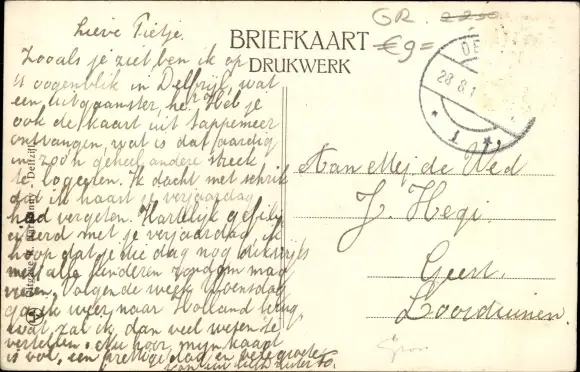 GR. 2250
€9=
BRIEFKAART
DRUKWERK
DE
28.8.1
1
Lieve Tietje.
Zooals je ziet ben ik op
't oogenblik in Delfzijl, wat
een uitgangster, he? Heb je
ook de kaart uit Sappemeer
ontvangen, wat is dat aardig
in zoo'n geheel andere streek
te logeeren. Ik dacht met schrik
dat ik haast je verjaardag
had vergeten. Hartelijk gefeli-
citeerd met je verjaardag, ik
hoop dat je die dag nog dikwijls
met alle kinderen rondom mag
vieren. Volgende week Woensdag
ga ik weer naar Holland terug,
wat zal ik dan veel weten te
vertellen. Nu hoor, mijn kaart
is vol, een prettige dag en vele groeten
van uw zuster To.
Aan Mej. de Wed
J. Hegi
Geest.
Loosduinen.
Delfzijl